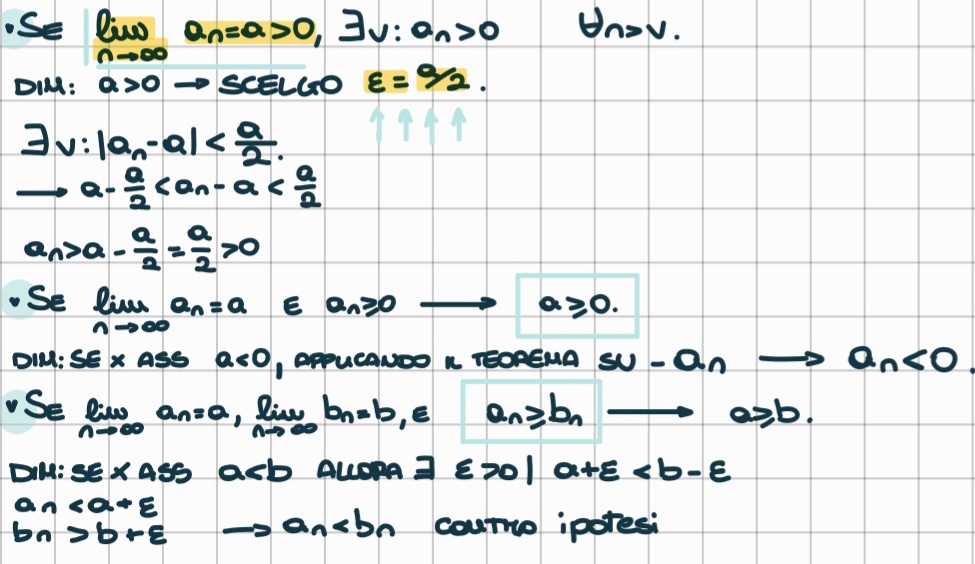 • SE lim n→∞ an=a>0, ∃ν: an>0 ∀n>ν.
DIM: a>0 → SCELGO ε = a/2.
∃ν: |an-a| < a/2.
→ a - a/2 < an - a < a/2
an > a - a/2 = a/2 > 0
• SE lim n→∞ an = a E an≥0 → a≥0.
DIM: SE X ASS a<0, APPLICANDO IL TEOREMA SU -an → an<0.
• SE lim n→∞ an=a, lim n→∞ bn=b, E an≥bn → a≥b.
DIM: SE X ASS a<b ALLORA ∃ ε>0 | a+ε < b-ε
an < a+ε
bn > b+ε → an<bn CONTRO ipotesi